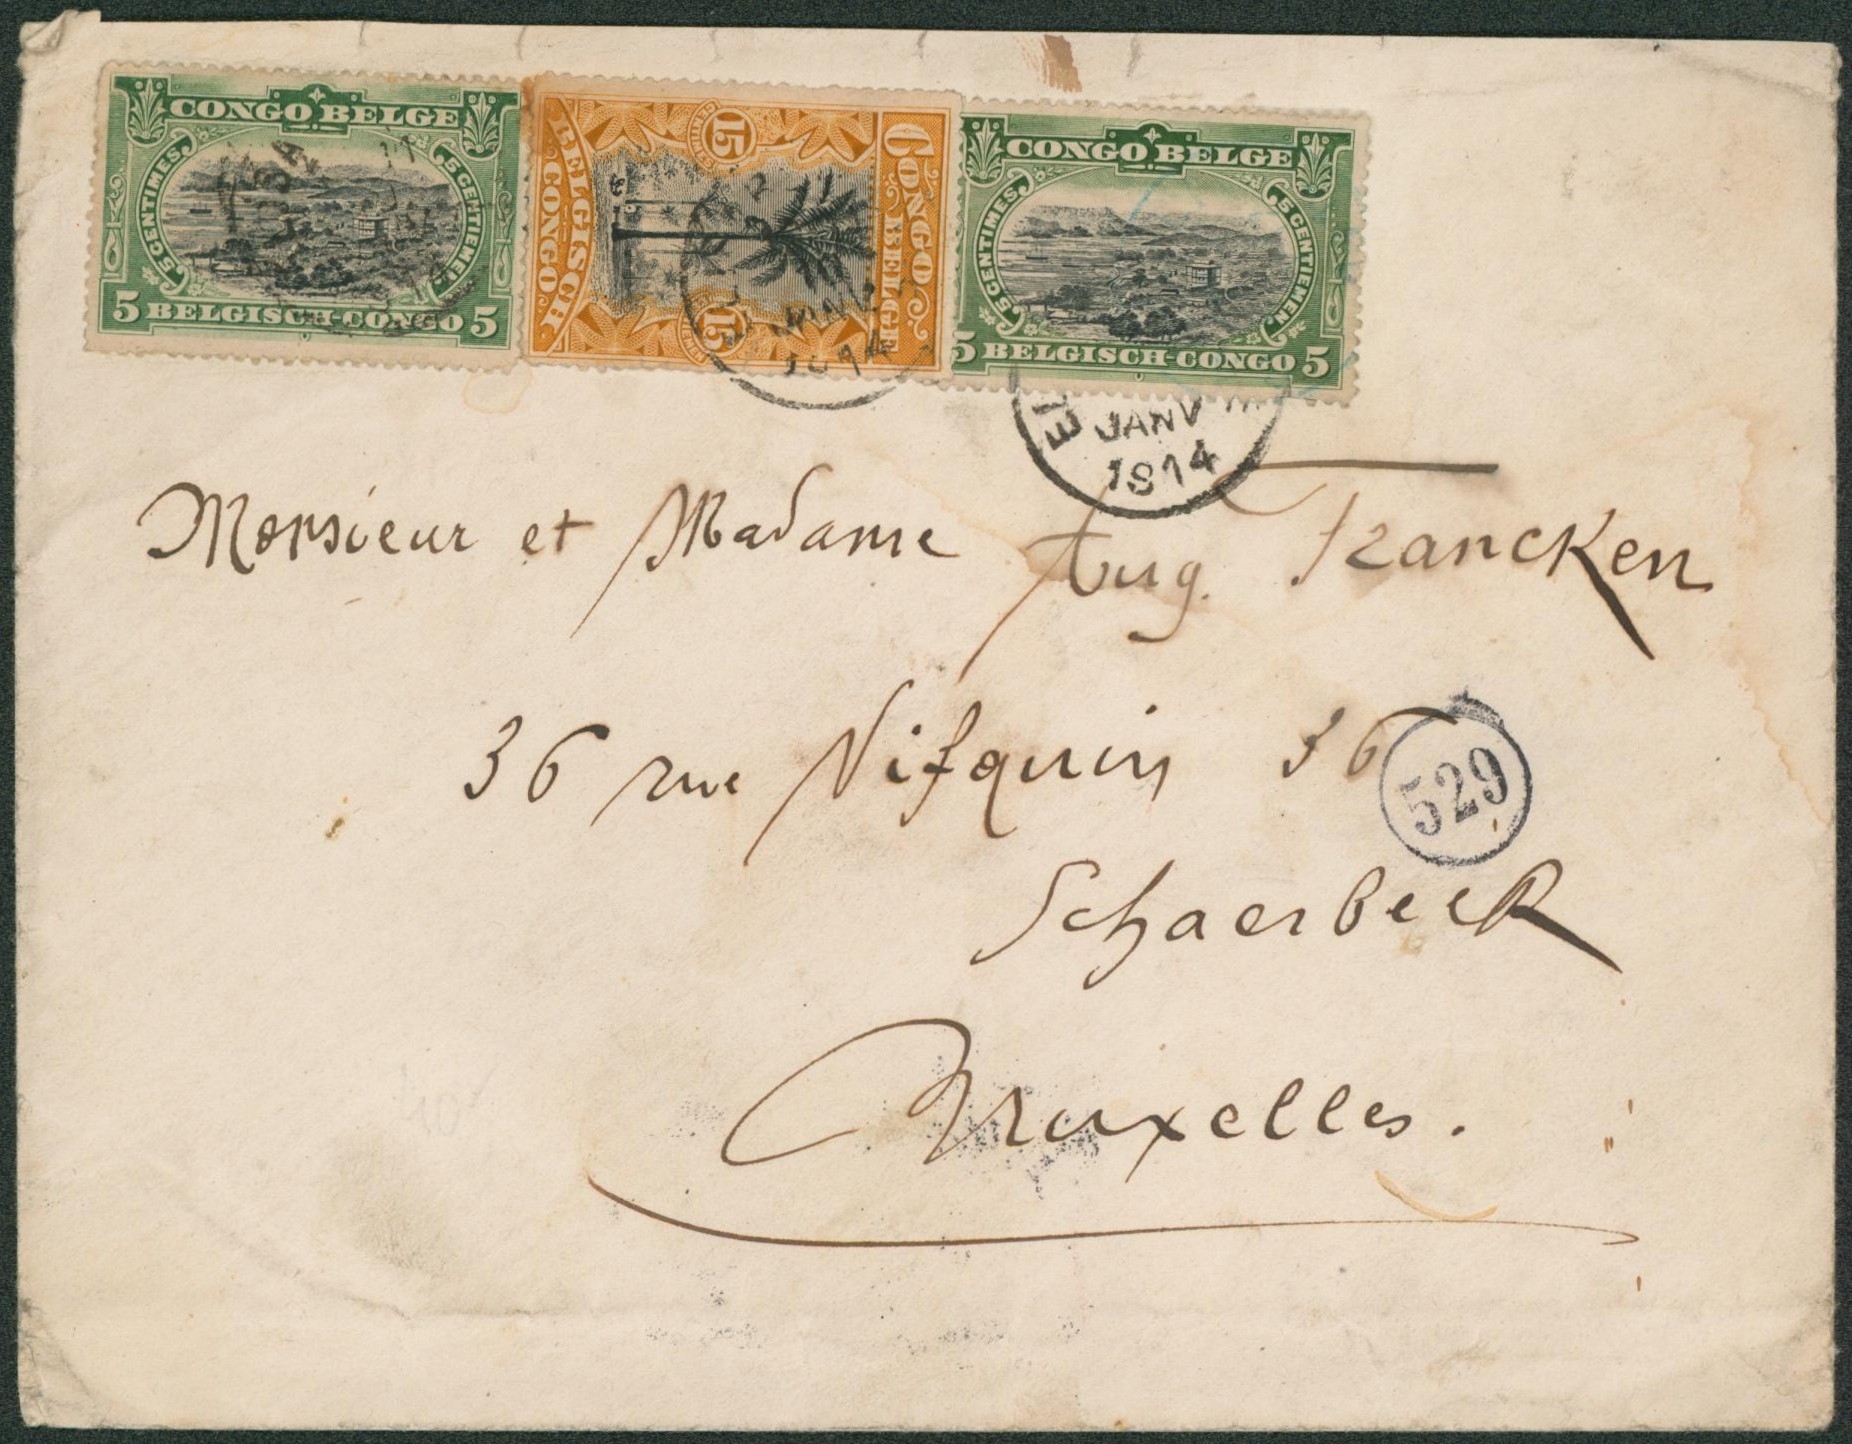 CONGO BELGE
5 CENTIMES.
5 CENTIEMEN.
5 BELGISCH-CONGO 5
CONGO BELGE
BELGISCH CONGO
15
15
CONGO BELGE
5 CENTIMES.
5 CENTIEMEN.
5 BELGISCH-CONGO 5
JANV
1914
JANV
1914
Monsieur et Madame Aug. Francken
36 rue Vifquin 36
529
Schaerbeek
Bruxelles.